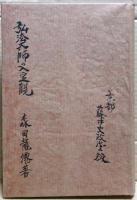 弘法大師の入定観
森田龍僊著
京都
藤井文政堂版